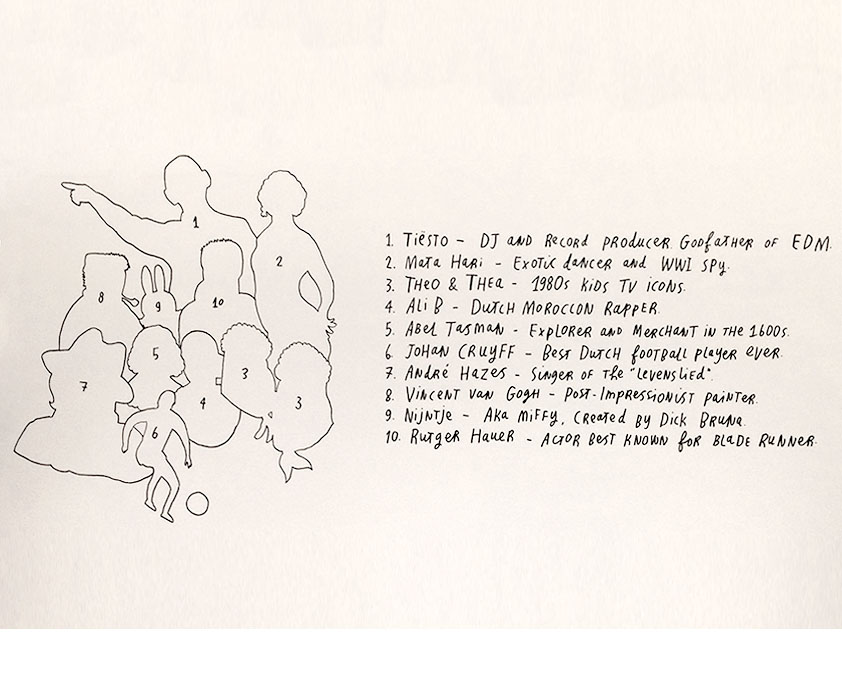 1
2
8
9
10
5
3
7
4
3
6
1. Tiësto - DJ and Record producer. Godfather of EDM.
2. Mata Hari - Exotic dancer and WWI spy.
3. Theo & Thea - 1980s kids TV icons.
4. Ali B - Dutch Moroccon Rapper.
5. Abel Tasman - Explorer and Merchant in the 1600s.
6. Johan Cruyff - Best Dutch football player ever.
7. André Hazes - Singer of the "Levenslied".
8. Vincent van Gogh - Post-Impressionist painter.
9. Nijntje - Aka Miffy, created by Dick Bruna.
10. Rutger Hauer - Actor best known for Blade Runner.